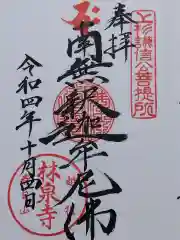 上杉謙信公菩提所
奉拝
南無釈迦牟尼佛
令和四年十月四日
林泉寺